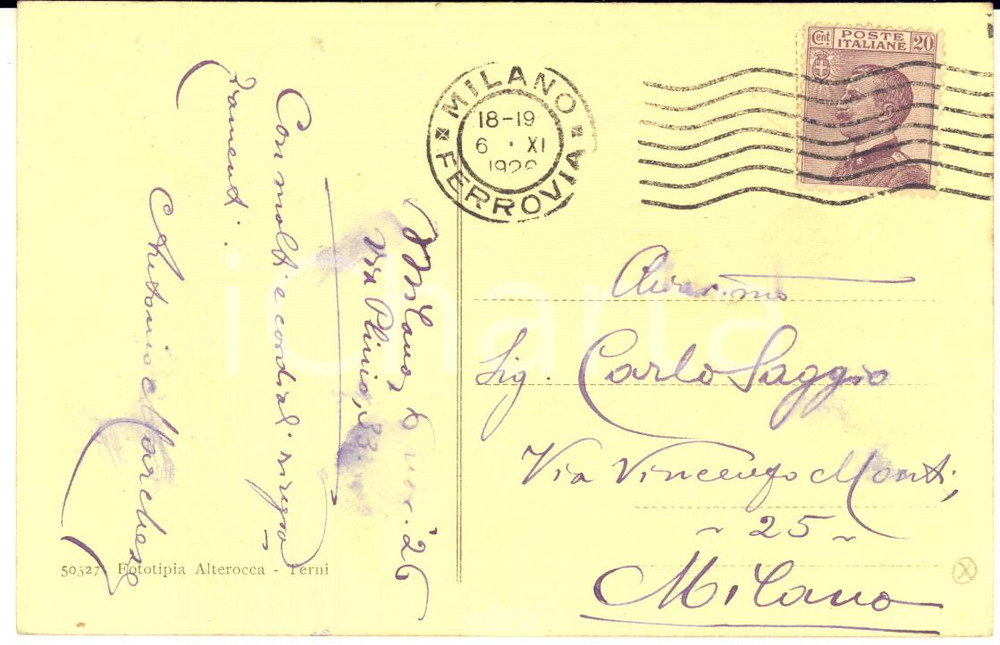 Milano, 6 '26
Via Plinio, 33
Con molti e cordiali ringra=
ziamenti.
Antonio Marchese
50527 Fototipia Alterocca - Terni
MILANO
18-19
6 · XI
1926
FERROVIA
Cent POSTE 20
ITALIANE
Chiar.mo
Sig. Carlo Saggio
Via Vincenzo Monti,
~ 25 ~
Milano
icharta